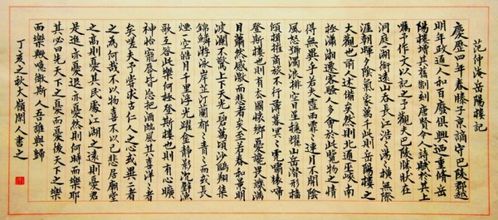 范仲淹 岳陽樓記
慶歷四年春滕子京謫守巴陵郡越
明年政通人和百廢俱興迺重修岳
陽樓增其舊制刻唐賢今人詩賦於其上
囑予作文以記之予觀夫巴陵勝狀在
洞庭一湖銜遠山吞長江浩浩湯湯橫無際
涯朝暉夕陰氣象萬千此則岳陽樓之
大觀也前人之述備矣然則北通巫峽南
極瀟湘遷客騷人多會於此覽物之情
得無異乎若夫霪雨霏霏連月不開陰
風怒號濁浪排空日星隱耀山岳潛形檣
傾楫摧商旅不行薄暮冥冥虎嘯猿啼
登斯樓也則有去國懷鄉憂讒畏譏滿
目蕭然感極而悲者矣至若春和景明
波瀾不驚上下天光一碧萬頃沙鷗翔集
錦鱗游泳岸芷汀蘭郁郁青青而或長
煙一空皓月千里浮光躍金靜影沉璧漁
歌互答此樂何極登斯樓也則有心曠
神怡寵辱皆忘把酒臨風其喜洋洋者
矣嗟夫予嘗求古仁人之心或異二者
之為何哉不以物喜不以己悲居廟堂
之高則憂其民處江湖之遠則憂其君
是進亦憂退亦憂然則何時而樂耶
其必曰先天下之憂而憂後天下之樂
而樂歟噫微斯人吾誰與歸
丁亥之秋大嶺閑人書之